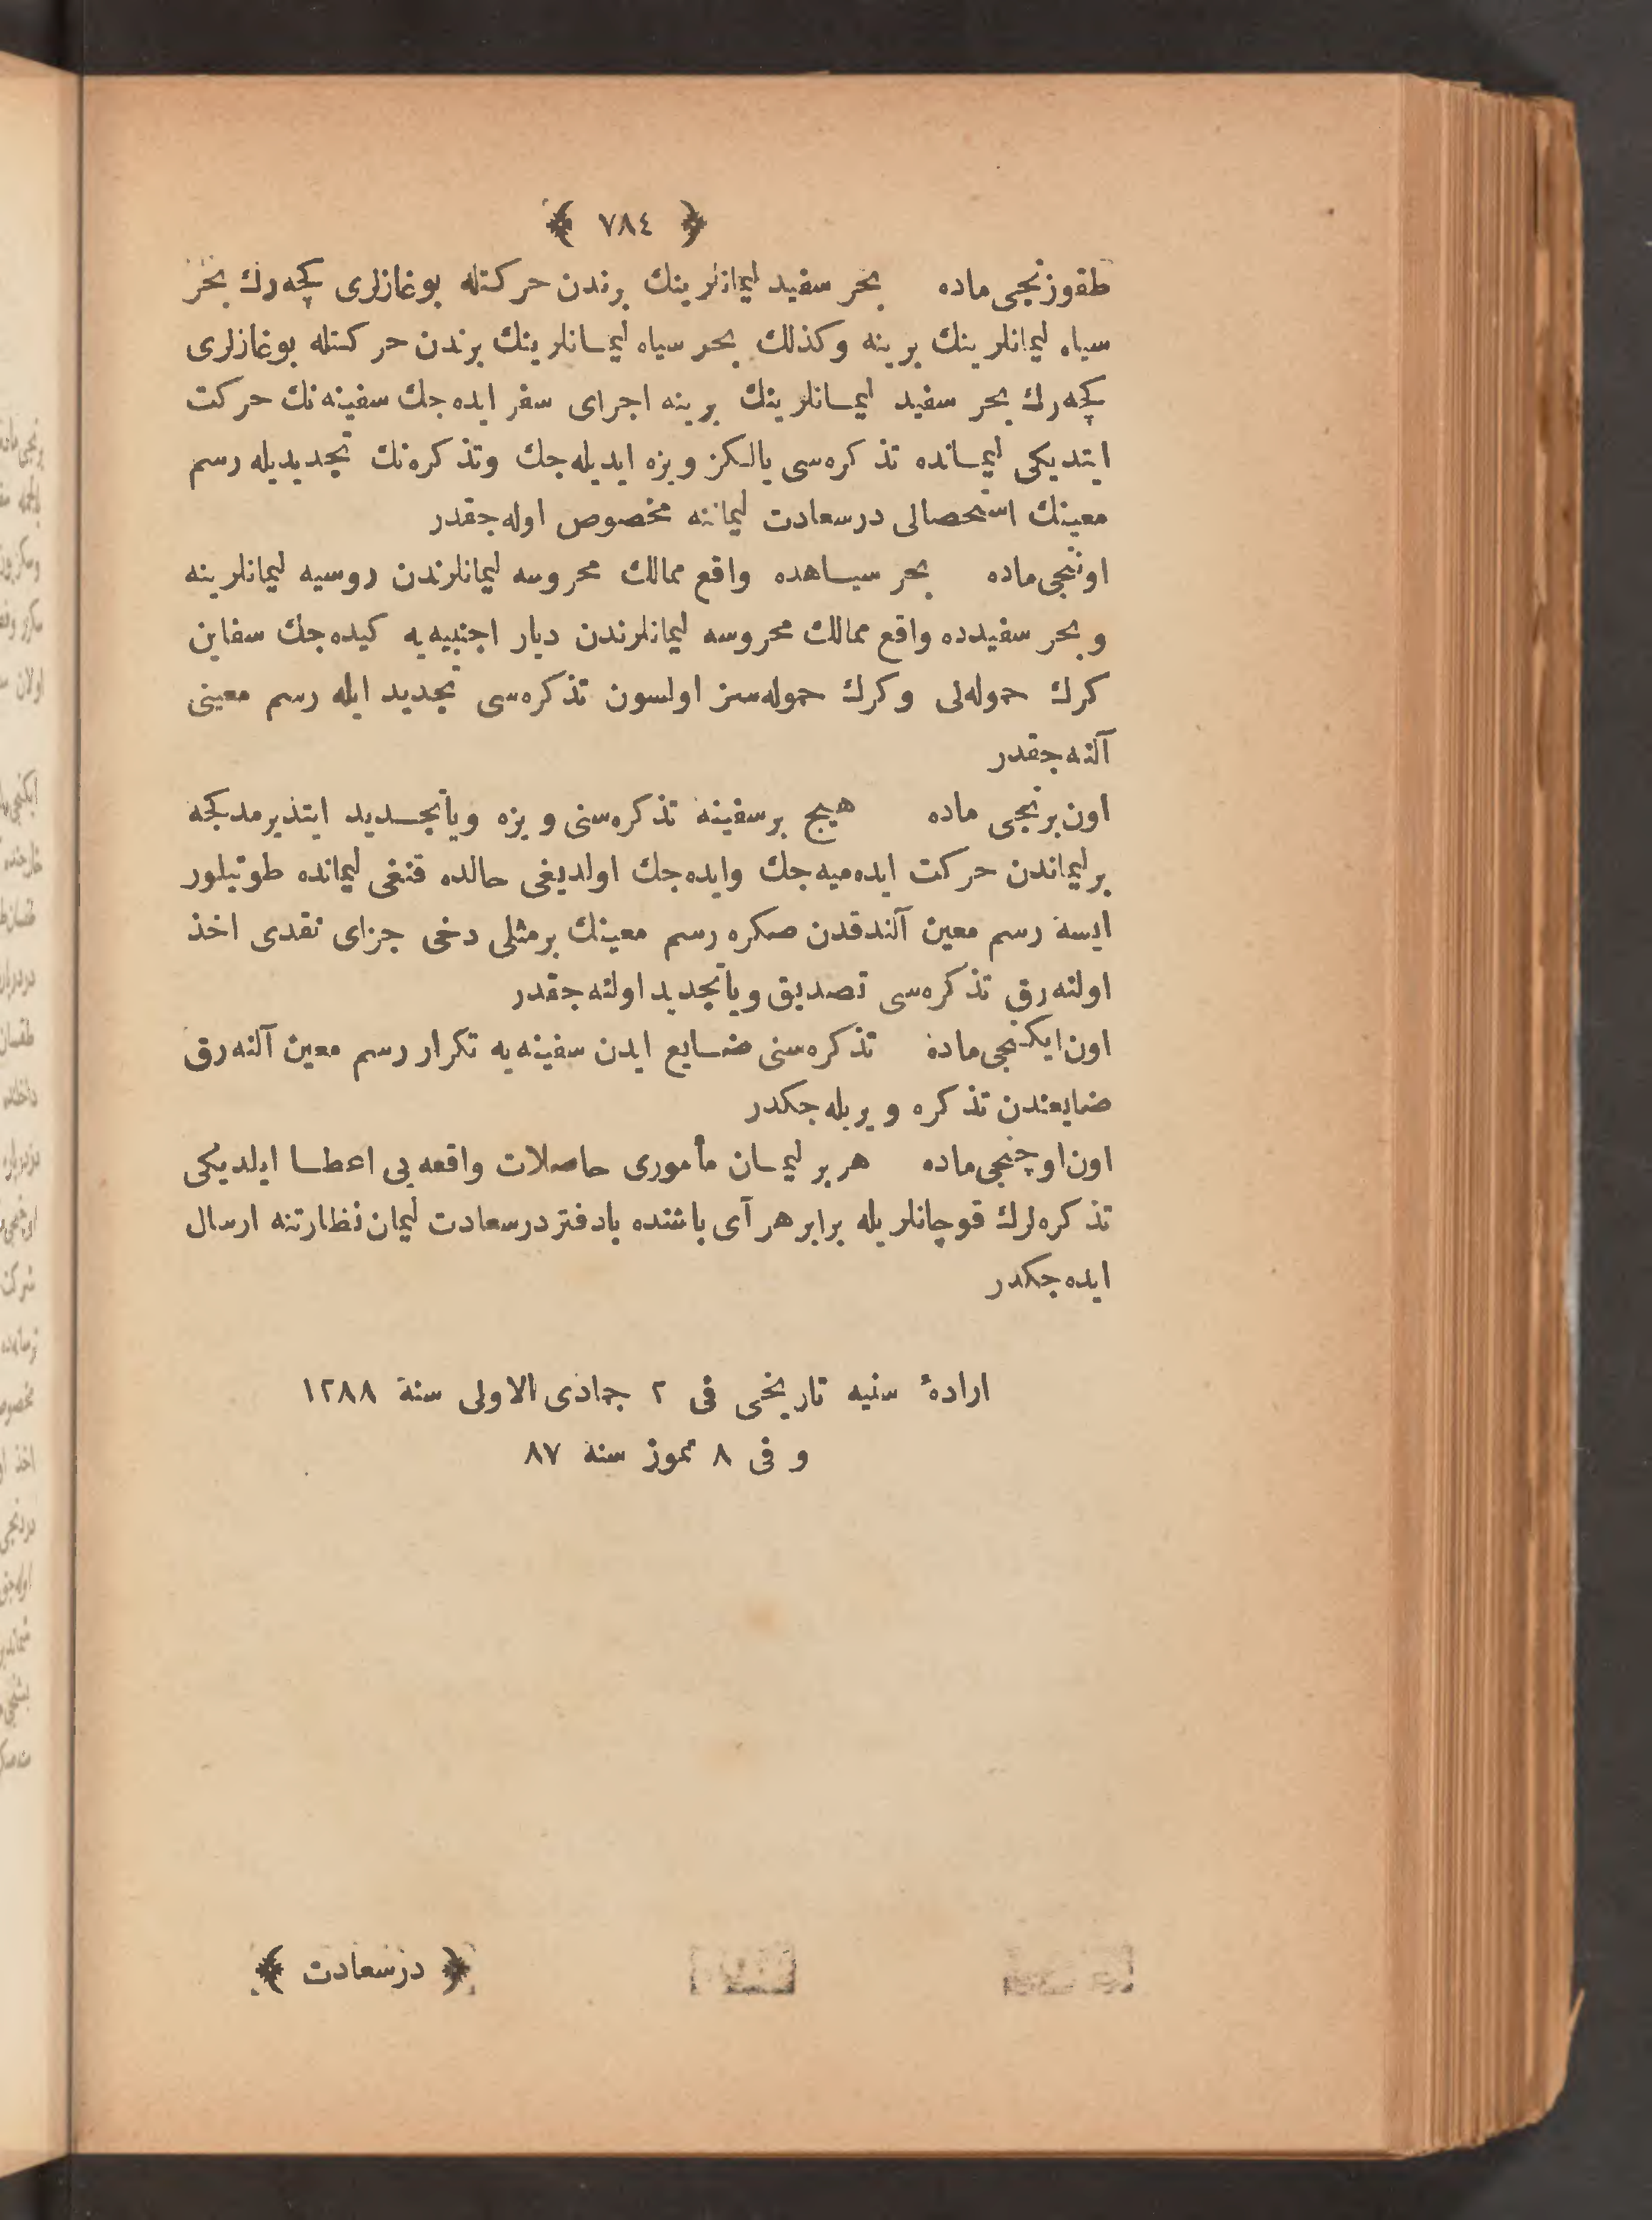 ﴿ ٧٨٤ ﴾
طقوزنجی ماده بحر سفید لیمانلرینك برندن حرکتله بوغازلری کچه‌رك بحر
سیاه لیمانلرینك برینه وکذلك بحر سیاه لیمانلرینك برندن حرکتله بوغازلری
کچه‌رك بحر سفید لیمانلرینك برینه اجرای سفر ایده‌جك سفینه‌نك حرکت
ایتدیکی لیمانده تذکره‌سی یالکز ویزه ایدیله‌جك وتذکره‌نك تجدیدیله رسم
معینك استحصالی درسعادت لیماننه مخصوص اوله‌جقدر
اوننجی ماده بحر سیاهده واقع ممالك محروسه لیمانلرندن روسیه لیمانلرینه
و بحر سفیدده واقع ممالك محروسه لیمانلرندن دیار اجنبیه‌یه کیده‌جك سفاین
کرك حموله‌لی وکرك حموله‌سز اولسون تذکره‌سی تجدید ایله رسم معینی
آلنه‌جقدر
اون‌برنجی ماده هیچ برسفینه تذکره‌سنی ویزه ویاتجدید ایتدیرمدکجه
برلیماندن حرکت ایده‌میه‌جك وایده‌جك اولدیغی حالده قنغی لیمانده طوتیلور
ایسه رسم معین آلندقدن صکره رسم معینك برمثلی دخی جزای نقدی اخذ
اولنه‌رق تذکره‌سی تصدیق ویاتجدید اولنه‌جقدر
اون‌ایکنجی ماده تذکره‌سنی ضایع ایدن سفینه‌یه تکرار رسم معین آلنه‌رق
ضایعندن تذکره ویریله‌جکدر
اون‌اوچنجی ماده هربر لیمان مأموری حاصلات واقعه‌یی اعطا ایلدیکی
تذکره‌لرك قوچانلریله برابر هر آی باشنده بادفتر درسعادت لیمان نظارتنه ارسال
ایده‌جکدر
ارادهٔ سنیه تاریخی فی ٢ جمادی الاولی سنة ١٢٨٨
و فی ٨ تموز سنه ٨٧
﴿ درسعادت ﴾